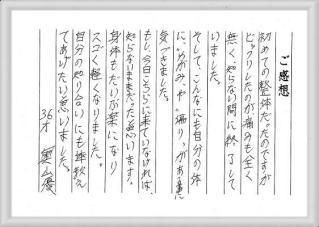 ご感想
初めての整体だったのですが
ビックリしたのが痛みも全く
無く、知らない間に終了して
いました。
そして、こんなにも自分の体
に、"ゆがみ"や"偏り"がある事に
気づきました。
もし、今日こちらに来ていなければ、
知らないままだったと思います。
身体もだいぶ楽になり
スゴく軽くなりました。
自分の知り合いにも是非教え
てあげたいと思いました。
36才